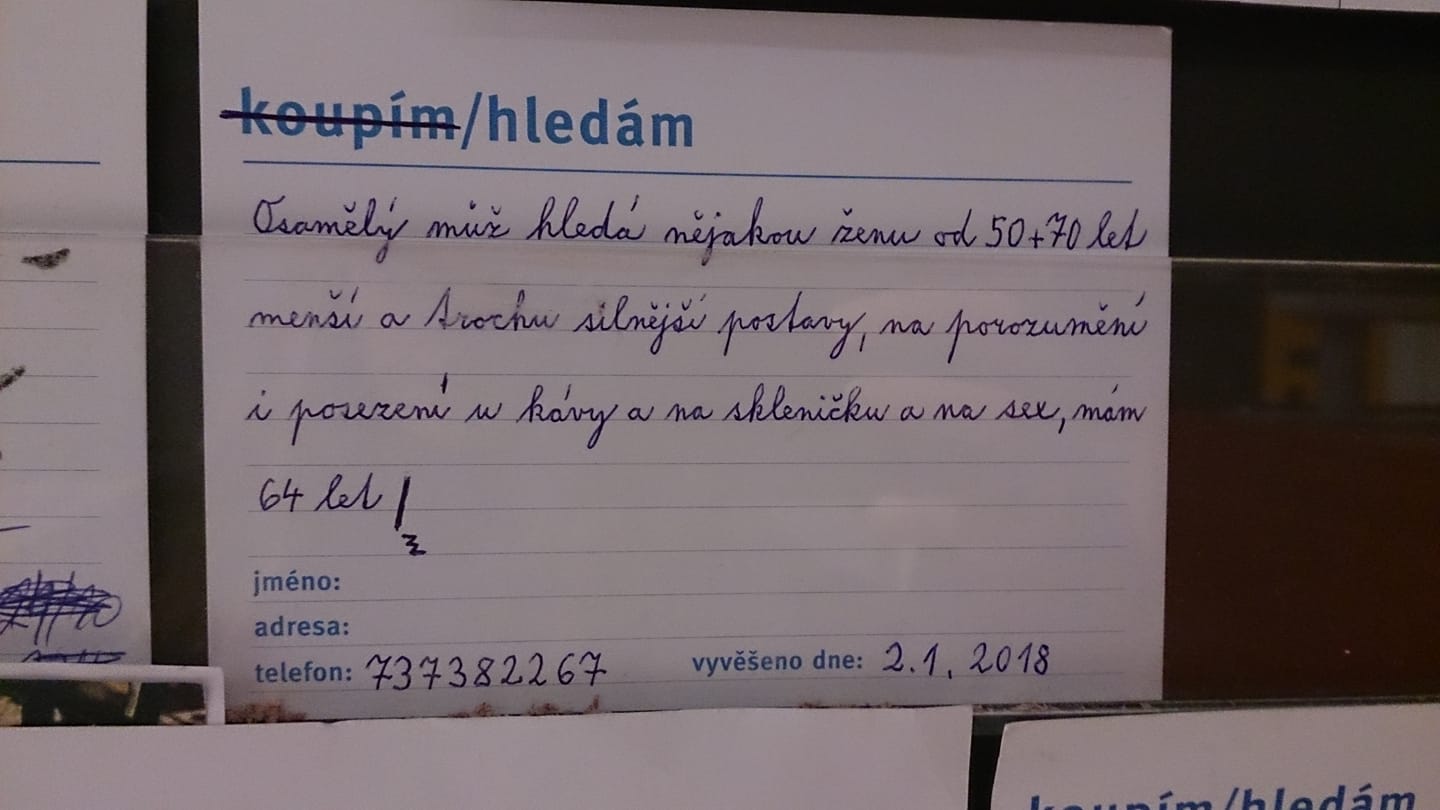 koupím/hledám
Osamělý můž hledá nějakou ženu od 50+70 let
menší a trochu silnější postavy, na porozumění
i posezení u kávy a na skleničku a na sex, mám
64 let
jméno:
adresa:
telefon: 737382267 vyvěšeno dne: 2.1. 2018
koupím/hledám